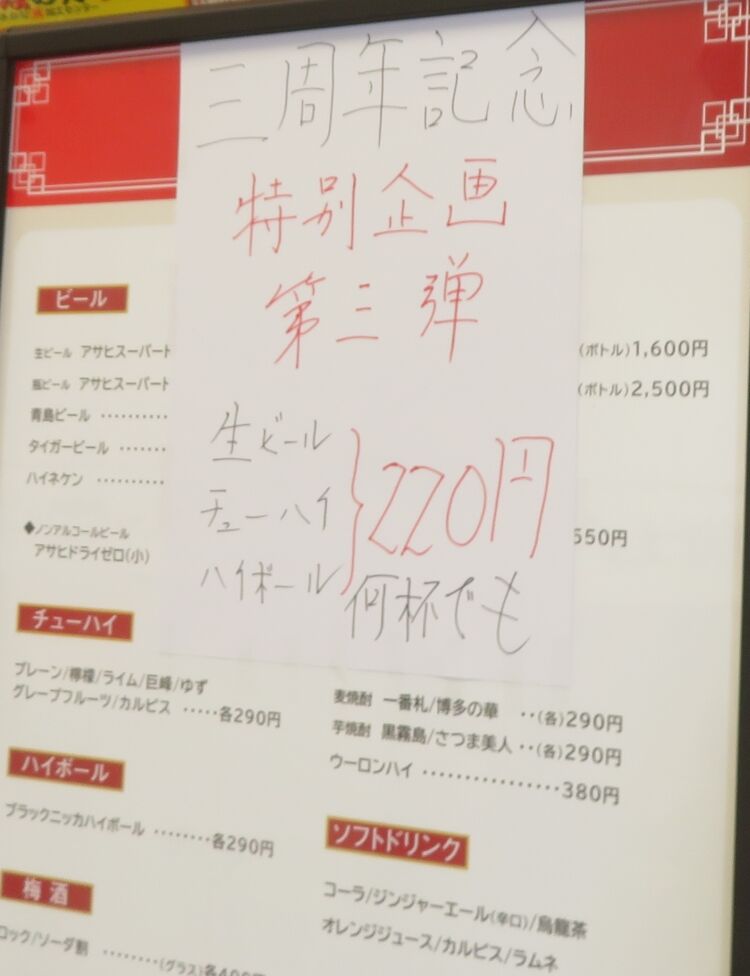 三周年記念
特別企画
第三弾
生ビール
チューハイ
ハイボール
220円
何杯でも
ビール
生ビール アサヒスーパード
瓶ビール アサヒスーパード
青島ビール ・・・・・・・・・・
タイガービール ・・・・・・・
ハイネケン ・・・・・・・・・・
◆ノンアルコールビール
アサヒドライゼロ(小)
(ボトル)1,600円
(ボトル)2,500円
550円
チューハイ
プレーン/檸檬/ライム/巨峰/ゆず
グレープフルーツ/カルピス ・・・・・各290円
ハイボール
ブラックニッカハイボール ・・・・・・・・各290円
梅酒
ロック/ソーダ割 ・・・・・・・・(グラス)各400円
麦焼酎 一番札/博多の華 ・・(各)290円
芋焼酎 黒霧島/さつま美人 ・・(各)290円
ウーロンハイ ・・・・・・・・・・・・・・・・380円
ソフトドリンク
コーラ/ジンジャーエール(辛口)/烏龍茶
オレンジジュース/カルピス/ラムネ